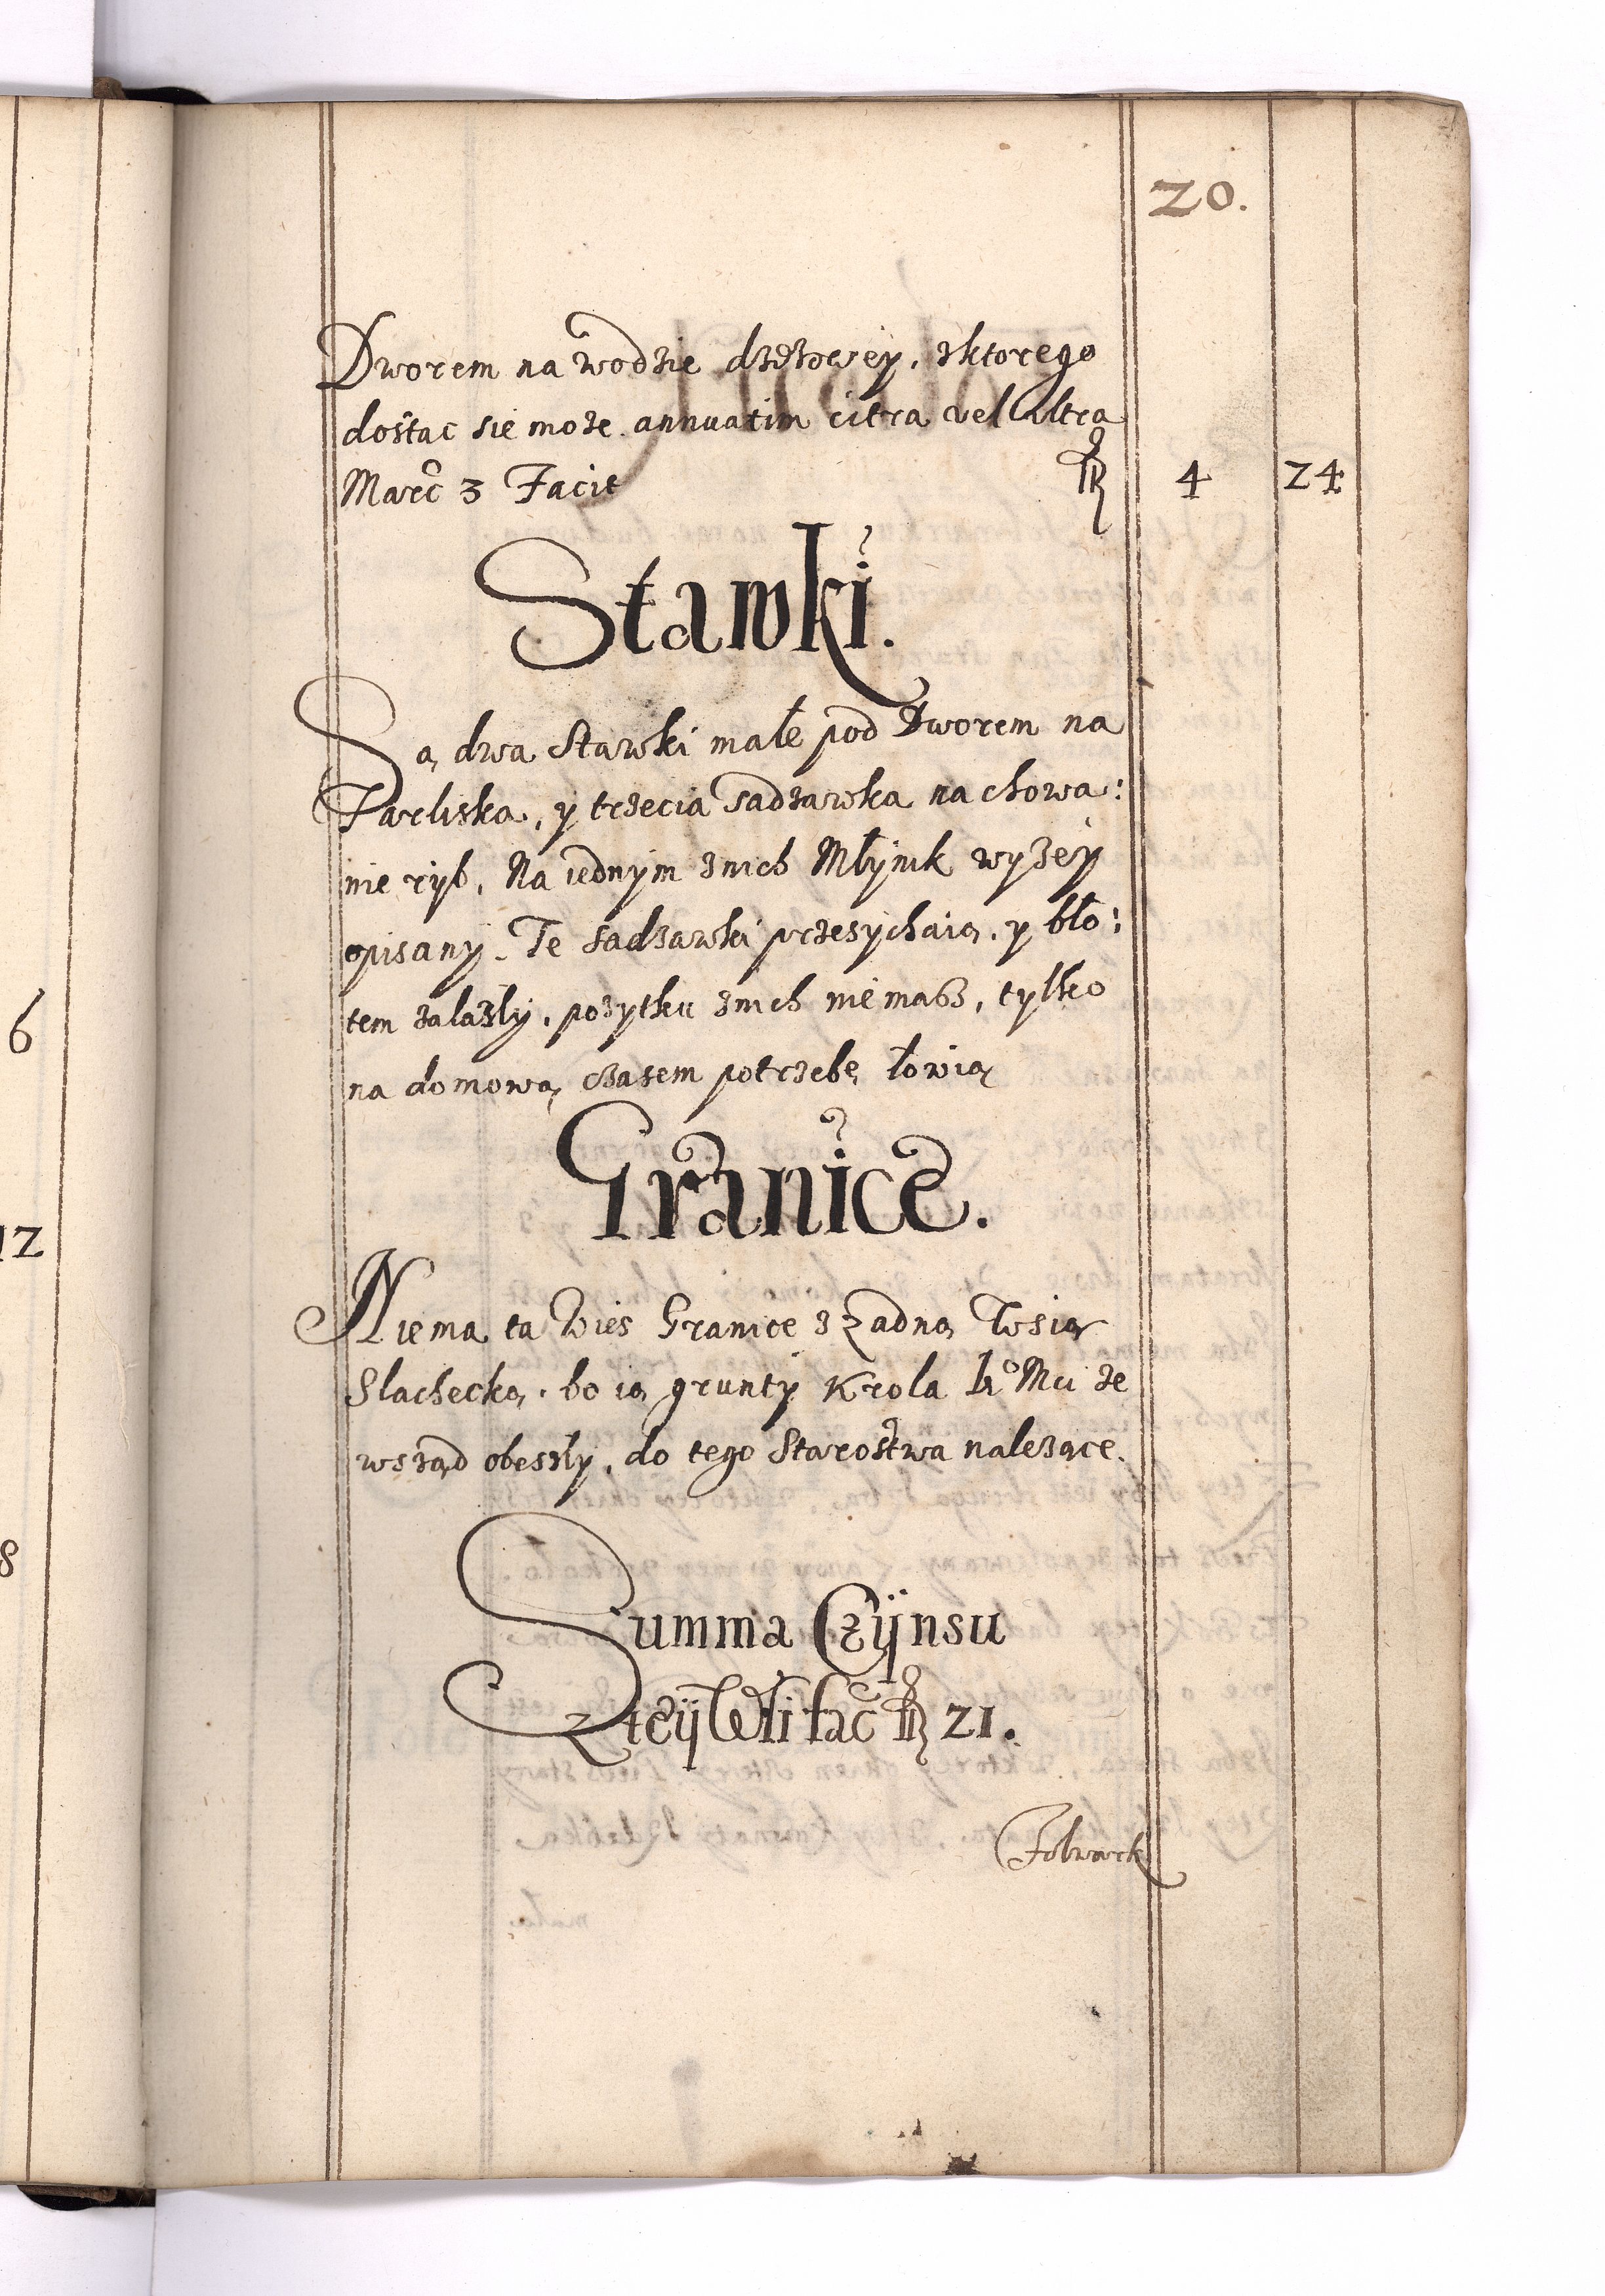 20.
Dworem na wodzie dżdżowey, zktorego
dostac sie może annuatim citra vel ultra
Marc 3 Facit fl 4 24
Stawki.
Są dwa Stawki małe pod Dworem na
Karliska, y trzecia sadzawka na chowa:
nie ryb, Na iednym znich Młynik wyżey
opisany. Te sadzawki przesychaią, y bło:
tem zalazły, pozytku znich niemasz, tylko
na domową czasem potrzebę łowią
Granice.
Niema ta Wies Granice z żadną Wsią
Slachecką, bo ią grunty Krola Jº Mci ze
wsząd obeszły, do tego Starostwa nalezące.
Summa Czynsu
z tey Wsi fac fl 21.
Folwark
6
12
8